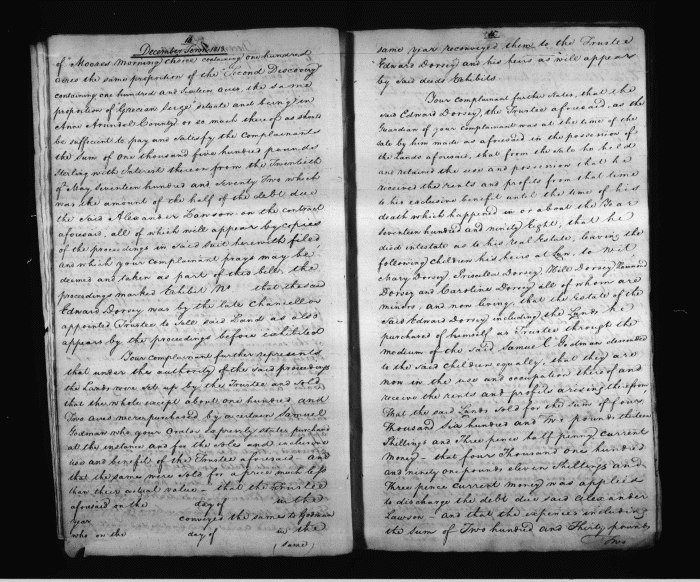 18
December Term 1813
of Mooses Morning Choice containing one hundred
acres the same proportion of the Second Discovery
containing one hundred and sixteen acres, the same
proportion of Grecian Seige situate and being in
Ann Arundel County or so much thereof as should
be sufficient to pay and satisfy the Complainants
the sum of One thousand five hundred pounds
Sterling with Interest thereon from the Twentieth
of May seventeen hundred and seventy Two which
was the amount of the half of the debt due
the said Alexander Lawson on the contract
aforesaid, all of which will appear by copies
of the proceedings in said suit herewith filed
and which your complainant prays may be
deemed and taken as part of this bill, the
proceedings marked Exhibit No that the said
Edward Dorsey was by the late Chancellor
appointed Trustee to Sell said Land as also
appears by the proceedings before exhibited
Your complainant further represents
that under this authority of the said proceedings
the Lands were set up by the Trustee and sold
that the whole except about one hundred and
Two acres were purchased by a certain Samuel
Godman who your Orator expressly states purchased
at the instance and for the sole and exclusive
use and benefit of the Trustee aforesaid, and
that the same were sold for a price much less
than their actual value – that the Trustee
aforesaid on the day of in the
year conveyed the same to Godman
who on the day of in the
(same)
same year reconveyed them to the Trustee
Edward Dorsey and his heirs as will appear
by said deeds Exhibits
Your complainant further states, that the
said Edward Dorsey, the Trustee aforesaid, as the
Guardian of your complainant was at the time of the
sale by him made as aforesaid in the possession of
the lands aforesaid, that from the sale he held
and retained the use and possession that he
received the rents and profits from that time
to his exclusive benefit until the time of his
death which happened in or about the Year
seventeen hundred and ninety Eight, that he
died intestate as to his real Estate, leaving the
following children his heirs at Law, to wit
Mary Dorsey Priscilla Dorsey, Hill Dorsey Hammond
Dorsey and Caroline Dorsey all of whom are
minors, and now living, that the Estate of the
said Edward Dorsey including the Lands he
purchased of himself as Trustee through the
medium of the said Samuel Godman descended
to the said Children equally, that they are
now in the use and occupation thereof and
receive the rents and profits arising therefrom,
That the said Lands sold for the sum of four
Thousand Six hundred and Two pounds thirteen
Shillings and Three pence half penny current
money – that four Thousand One hundred
and ninety one pounds eleven Shillings and
Three pence current money was applied
to discharge the debt due said Alexander
Lawson – and that the expences including
the sum of Two hundred and Thirty pounds
Two